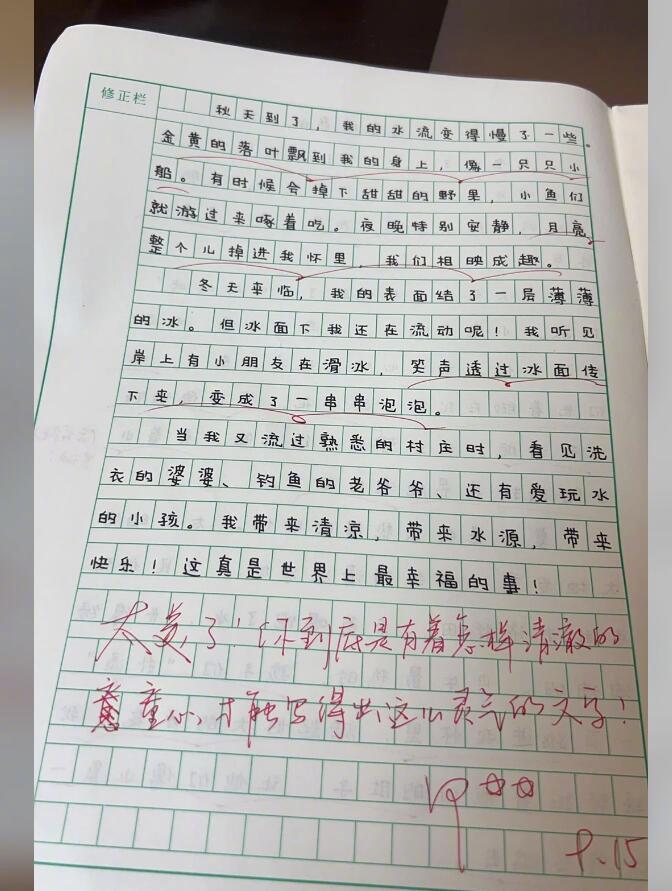 修正栏
秋天到了，我的水流变得慢了一些。
金黄的落叶飘到我的身上，像一只只小
船。有时候会掉下甜甜的野果，小鱼们
就游过来啄着吃。夜晚特别安静，月亮
整个儿掉进我怀里，我们相映成趣。
冬天来临，我的表面结了一层薄薄
的冰。但冰面下我还在流动呢！我听见
岸上有小朋友在滑冰，笑声透过冰面传
下来，变成了一串串泡泡。
当我又流过熟悉的村庄时，看见洗
衣的婆婆、钓鱼的老爷爷、还有爱玩水
的小孩。我带来清凉，带来水源，带来
快乐！这真是世界上最幸福的事！
太美了！你到底是有着怎样清澈的
童心，才能写得出这么灵气的文字！
优☆☆
9.15